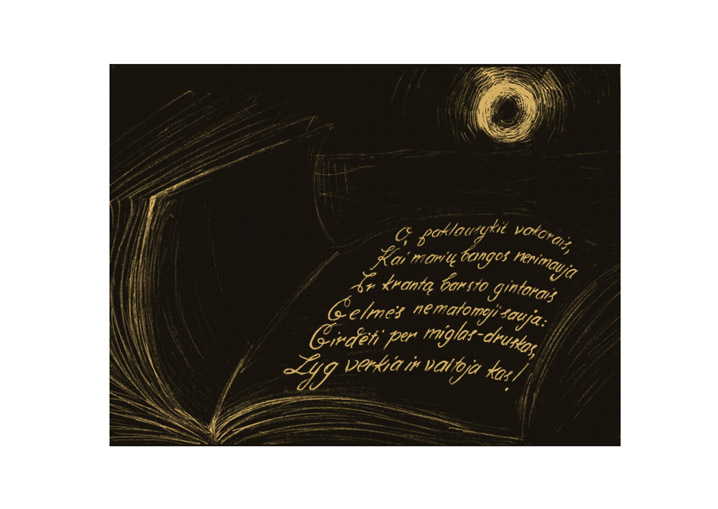 O, paklausykit vakarais,
Kai marių bangos nerimauja
Ir krantą barsto gintarais
Gelmės nematomoji sauja:
Girdėti per miglas-druskas,
Lyg verkia ir vaitoja kas!